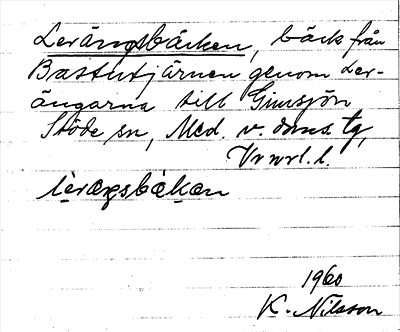 Lerängsbäcken, bäck från
Bastutjärnen genom Ler-
ängarna till Gimsjön
Stöde sn, Med. v. doms. tg,
Vvnrl. l.
lerægsbäkan
1960
K. Nilsson